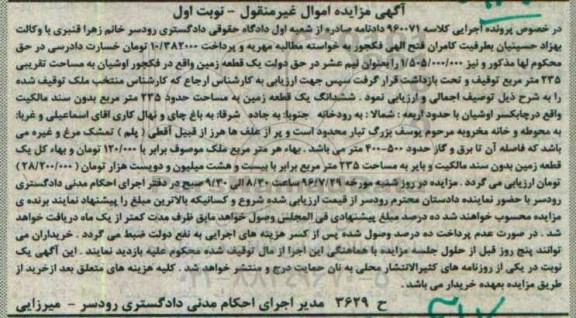 آگهی مزایده اموال غیرمنقول - نوبت اول
در خصوص پرونده اجرایی کلاسه ۹۶۰۰۷۱ دادنامه صادره از شعبه اول دادگاه حقوقی دادگستری رودسر خانم زهرا قنبری با وکالت
بهزاد حسینیان بطرفیت کامران فتح الهی فکجور به خواسته مطالبه مهریه و پرداخت ۱۰/۳۸۲۰۰۰ تومان خسارت دادرسی در حق
محکوم لها مذکور و نیز ۱/۵۰۵/۰۰۰/۰۰۰ را بعنوان نیم عشر در حق دولت یک قطعه زمین واقع در فکجور اوشیان به مساحت تقریبی
۲۳۵ متر مربع توقیف و تحت بازداشت قرار گرفت سپس جهت ارزیابی به کارشناس ارجاع که کارشناس منتخب ملک توقیف شده
را به شرح ذیل توصیف اجمالی و ارزیابی نمود . ششدانگ یک قطعه زمین به مساحت حدود ۲۳۵ متر مربع بدون سند مالکیت
واقع درچابکسر اوشیان با حدود اربعه : شمالا : به رودخانه جنوبا: به جاده شرقا: به باغ چای و نهال کاری آقای اسماعیلی و غربا:
به محوطه و خانه مخروبه مرحوم یوسف بزرگ تبار محدود است و پر از علف ها هرز از قبیل آقطی ( پلم ) تمشک مرغ و غیره می
باشد که فاصله آن تا برق و گاز حدود ۵۰۰-۴۰۰ متر می باشد . بهاء هر متر مربع ملک موصوف برابر با ۱۲۰/۰۰۰ تومان و بهاء کل یک
قطعه زمین بدون سند مالکیت و بایر به مساحت ۲۳۵ متر مربع برابر با بیست و هشت میلیون و دویست هزار تومان (۲۸/۲۰۰/۰۰۰)
تومان ارزیابی می گردد . مزایده در روز شنبه مورخه ۹۶/۷/۲۹ ساعت ۸/۳۰ الی ۹/۳۰ صبح در دفتر اجرای احکام مدنی دادگستری
رودسر با حضور نماینده دادستان محترم رودسر از قیمت ارزیابی شده شروع و کسانیکه بالاترین مبلغ را پیشنهاد نمایند برنده ی
مزایده محسوب خواهند شد ده درصد مبلغ پیشنهادی فی المجلس وصول خواهد مابق ظرف مدت کمتر از یک ماه دریافت خواهد
شد . در صورت عدم پرداخت ده درصد وصول شده پس از کسر هزینه های اجرایی به نفع دولت ضبط می گردد . خریداران می
توانند پنج روز قبل از حلول جلسه مزایده با هماهنگی این اجرا از مال توقیف شده محکوم علیه بازدید نمایند . این آگهی یک
نوبت در یکی از روزنامه های کثیرالانتشار محلی به نان حمایت درج و منتشر خواهد شد . کلیه هزینه های متعلق بعد ازخرید از
طریق مزایده بعهده خریدار می باشد .
ح ۳۶۲۹ مدیر اجرای احکام مدنی دادگستری رودسر - میرزایی